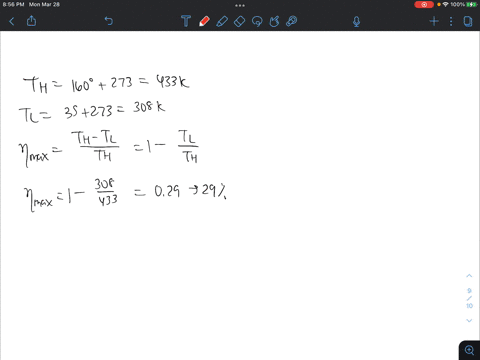 8:56 PM Mon Mar 28
100%
T_H = 160° + 273 = 433 K
T_L = 35 + 273 = 308 K
η_max = (T_H - T_L)/T_H = 1 - T_L/T_H
η_max = 1 - 308/433 = 0.29 → 29%
9
/
10